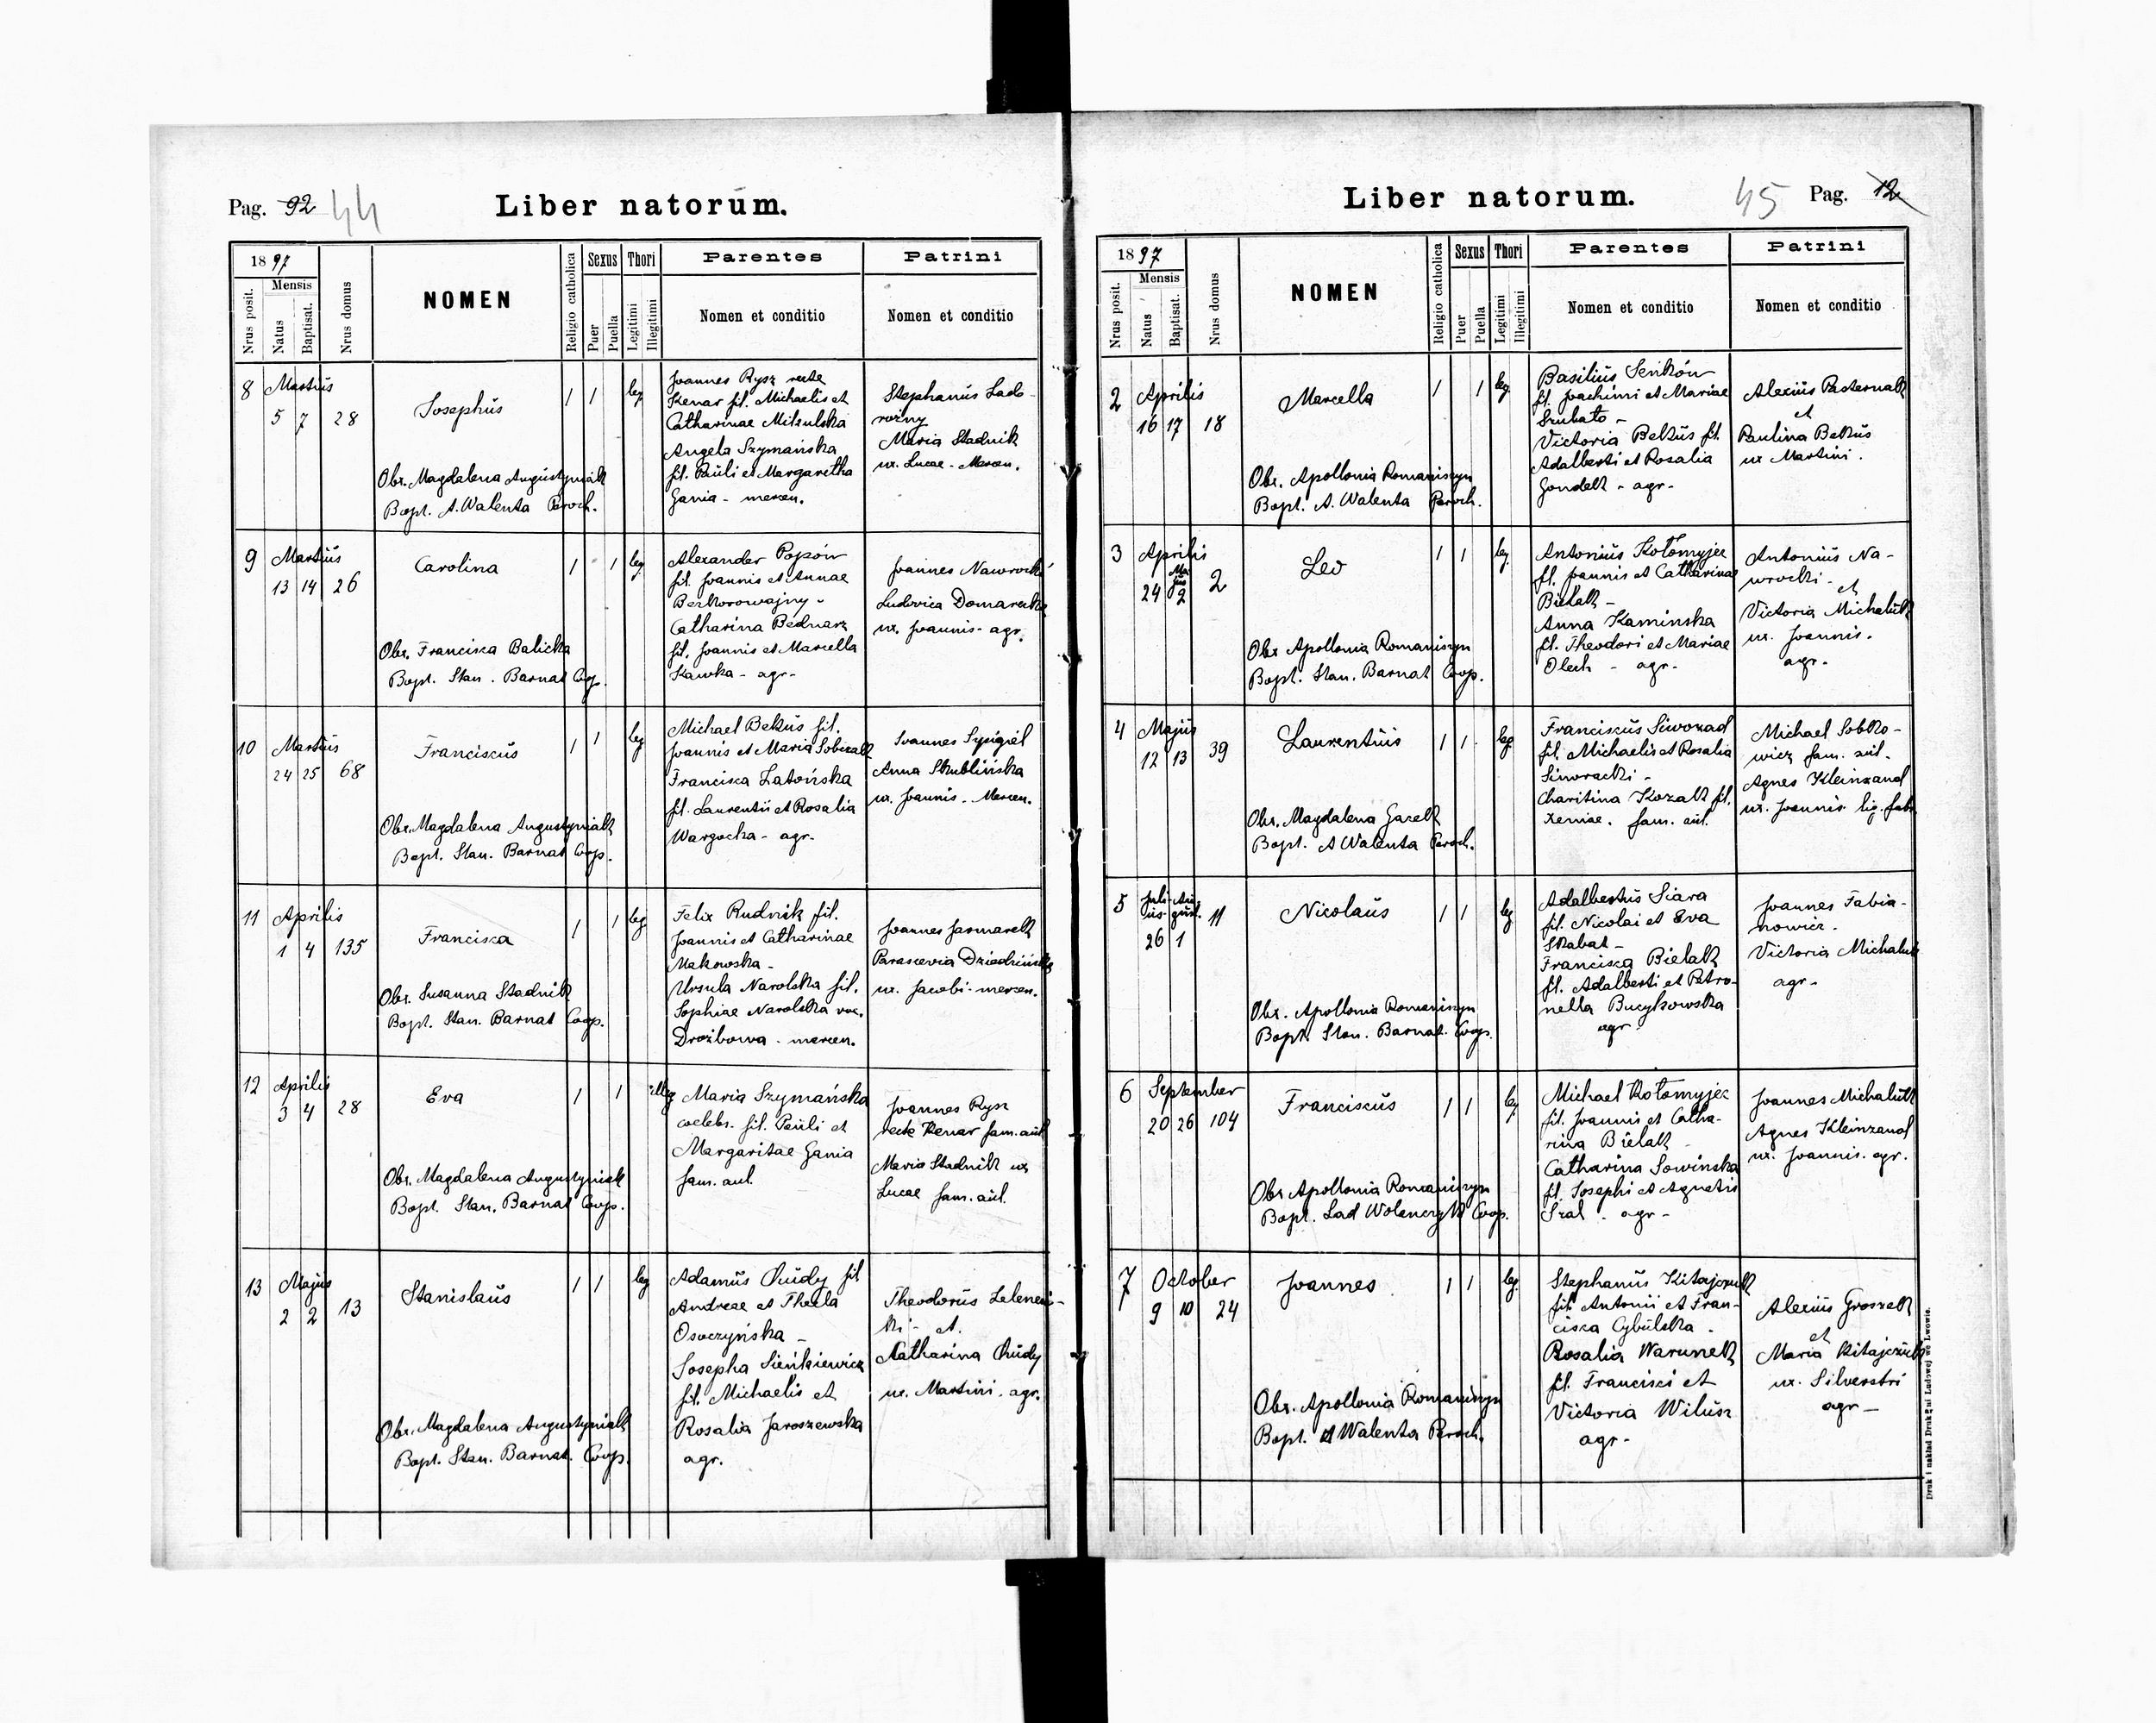 Pag. 92 44
Liber natorum.
1897
Mensis
Nrus posit.
Natus
Baptisat.
Nrus domus
NOMEN
Religio catholica
Sexus
Puer
Puella
Thori
Legitimi
Illegitimi
Parentes
Nomen et conditio
Patrini
Nomen et conditio
8 Martius
5 7 28
Josephus
1 1 leg
Obs. Magdalena Augustyniak
Bapt. A. Walenta Paroch.
Joannes Rysz recte
Kenar fil. Michaelis et
Catharinae Mikulska
Angela Szymańska
fil. Pauli et Margaretha
Gania - mercen.
Stephanus Lado-
rożny
Maria Stadnik
ux. Lucae - Mercen.
9 Martius
13 14 26
Carolina
1 1 leg
Obs. Francisca Balicka
Bapt. Stan. Barnat Coop.
Alexander Popów
fil. Joannis et Annae
Bezkorowajny -
Catharina Bednarz
fil. Joannis et Marcella
Kawka - agr-
Joannes Nawrocki
Ludovica Domarecka
ux. Joannis - agr.
10 Martius
24 25 68
Franciscus
1 1 leg
Obs. Magdalena Augustyniak
Bapt. Stan. Barnat Coop.
Michael Bekus fil.
Joannis et Maria Sobczak
Francisca Latońska
fil. Laurentii et Rosalia
Wargocka - agr-
Joannes Sysigiel
Anna Skublińska
ux. Joannis - Mercen.
11 Aprilis
1 4 135
Francisca
1 1 leg
Obs. Susanna Stadnik
Bapt. Stan. Barnat Coop.
Felix Rudnik fil.
Joannis et Catharinae
Makowska -
Ursula Narolska fil.
Sophiae Narolska voc.
Drożbowa - mercen.
Joannes Jasmarek
Parascevia Dziedzińska
ux. Jacobi - mercen.
12 Aprilis
3 4 28
Eva
1 1 illeg
Obs. Magdalena Augustyniak
Bapt. Stan. Barnat Coop.
Maria Szymańska
coelebs. fil. Pauli et
Margaritae Gania
fam. aul.
Joannes Rysz
recte Kenar fam. aul
Maria Stadnik ux
Lucae fam. aul.
13 Majus
2 2 13
Stanislaus
1 1 leg
Obs. Magdalena Augustyniak
Bapt. Stan. Barnat. Coop.
Adamus Chudy fil
Andreae et Thecla
Osoczyńska -
Josepha Sieńkiewicz
fil. Michaelis et
Rosalia Jaroszewska
agr.
Theodorus Zeleneń-
ki - et.
Catharina Chudy
ux. Martini. agr.
Liber natorum.
45 Pag. 12
1897
Mensis
Nrus posit.
Natus
Baptisat.
Nrus domus
NOMEN
Religio catholica
Sexus
Puer
Puella
Thori
Legitimi
Illegitimi
Parentes
Nomen et conditio
Patrini
Nomen et conditio
2 Aprilis
16 17 18
Marcella
1 1 leg
Obs. Apollonia Romaniszyn
Bapt. A. Walenta Paroch.
Basilius Senków
fil. Joachimi et Mariae
Szubato -
Victoria Bekus fil.
Adalberti et Rosalia
Gondek - agr-
Alexius Pasternak
et
Paulina Bekus
ux Martini.
3 Aprilis
24 Majus 2 2
Leo
1 1 leg
Obs Apollonia Romaniszyn
Bapt. Stan. Barnat Coop.
Antonius Kołomyjec
fil. Joannis et Catharinae
Bielak -
Anna Kaminska
fil. Theodori et Mariae
Olech - agr-
Antonius Na-
wrocki - et
Victoria Michaluk
ux. Joannis.
agr-
4 Majus
12 13 39
Laurentius
1 1 leg
Obs. Magdalena Gazek
Bapt. A Walenta Paroch.
Franciscus Siworad
fil. Michaelis et Rosalia
Siworacki -
Charitina Kozak fil.
Xeniae. fam. aul.
Michael Sobko-
wicz fam. aul.
Agnes Kleinzand
ux. Joannis lig. fabr
5 Julius August.
26 1 11
Nicolaus
1 1 leg
Obs. Apollonia Romaniszyn
Bapt. Stan. Barnat. Coop.
Adalbertus Siara
fil. Nicolai et Eva
Skabat -
Francisca Bielak
fil. Adalberti et Petro-
nella Bucykowska
agr
Joannes Fabia-
nowicz.
Victoria Michaluk
agr-
6 September
20 26 104
Franciscus
1 1 leg
Obs Apollonia Romaniszyn
Bapt. Lad Wolenczyk Coop.
Michael Kołomyjec
fil. Joannis et Catha-
rina Bielak
Catharina Sowinska
fil. Josephi et Agnetis
Szal - agr-
Joannes Michaluk
Agnes Kleinzand
ux. Joannis. agr.
7 October
9 10 24
Joannes
1 1 leg
Obs. Apollonia Romaniszyn
Bapt. A Walenta Paroch.
Stephanus Kitajczuk
fil. Antonii et Fran-
cisca Cybulska -
Rosalia Warunek
fil. Francisci et
Victoria Wilusz
agr-
Alexius Groszek
et
Maria Kitajczuk
ux. Silvestri
agr-
Druk i nakład Drukarni Ludowej we Lwowie.